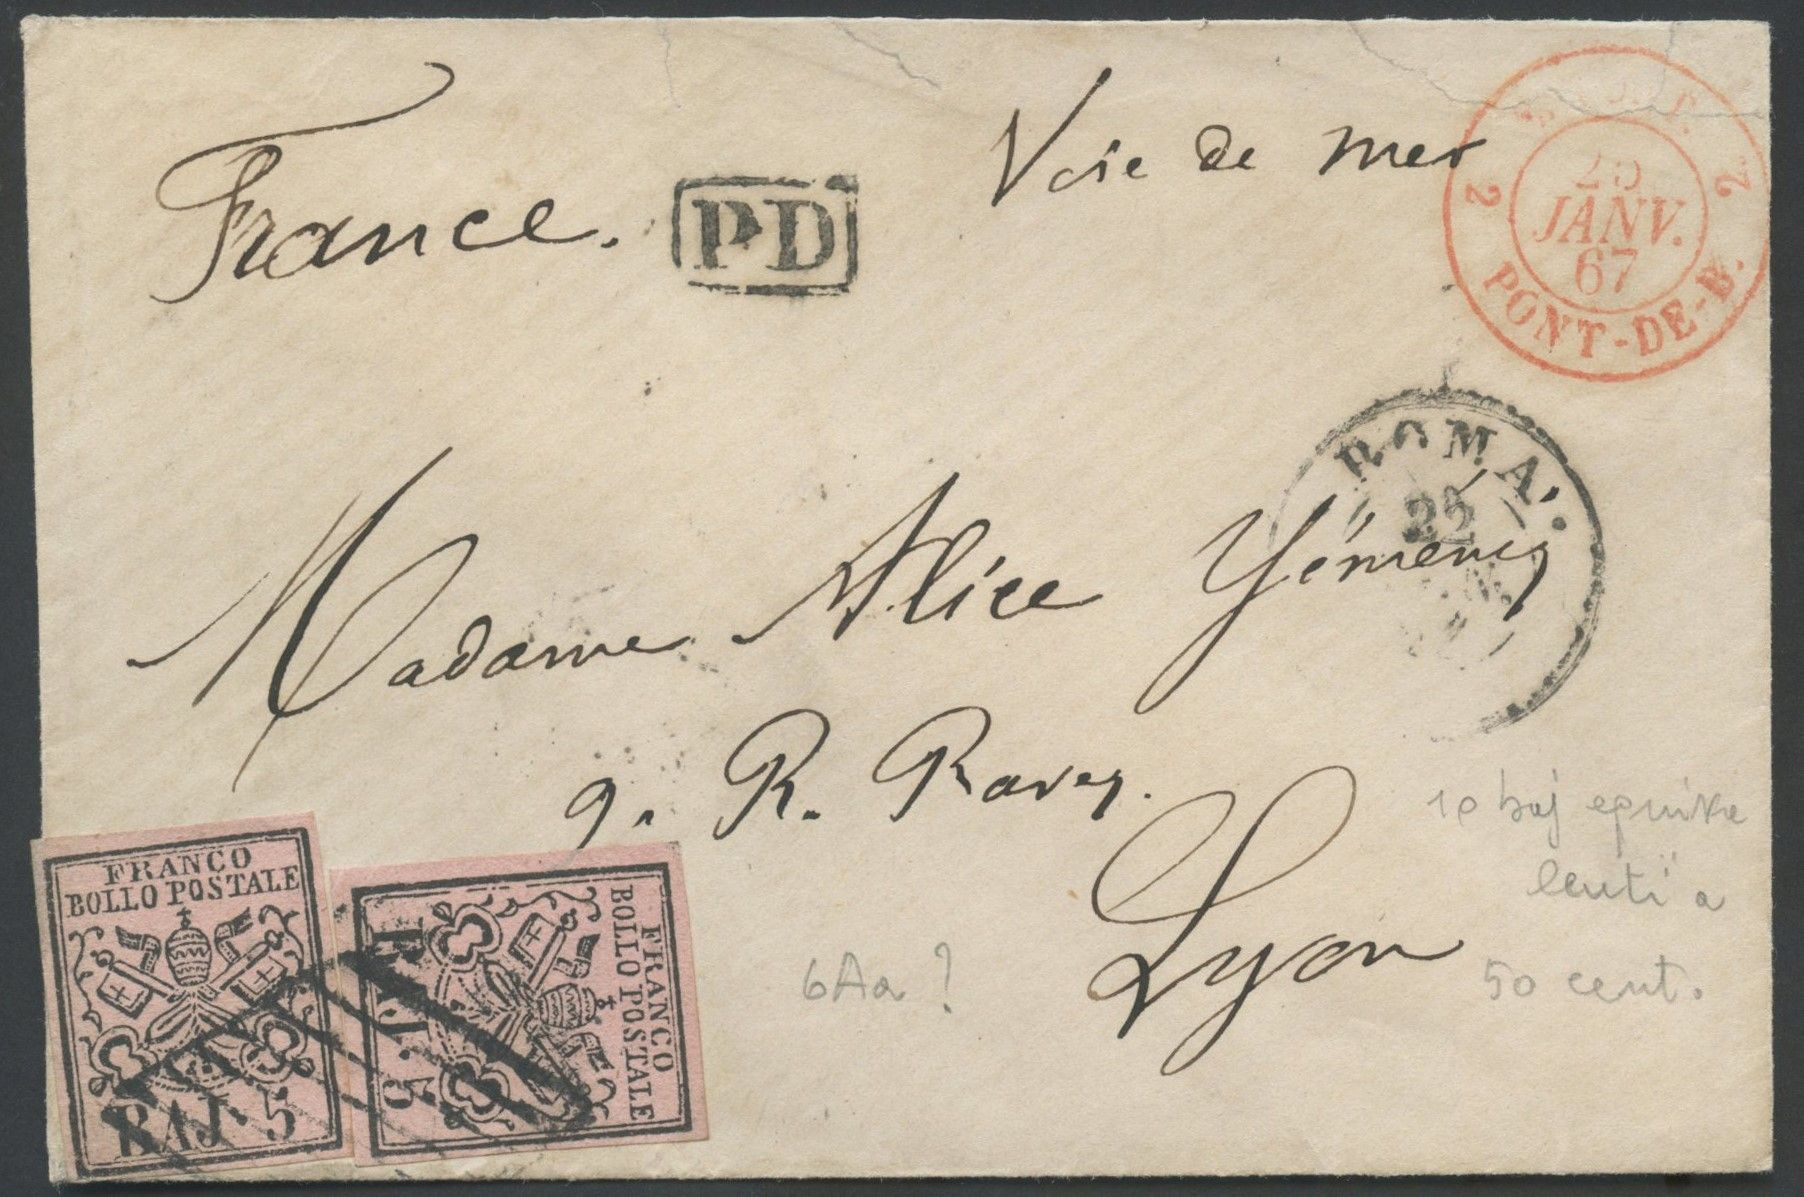 France.
PD
Voie de mer
2 2
25
JANV.
67
PONT-DE-B.
ROMA.
Madame Alice Yéméniz
9. R. Ravez.
Lyon
FRANCO
BOLLO POSTALE
BAJ. 5
FRANCO
BOLLO POSTALE
BAJ. 5
6Aa ?
10 baj
50 cent.